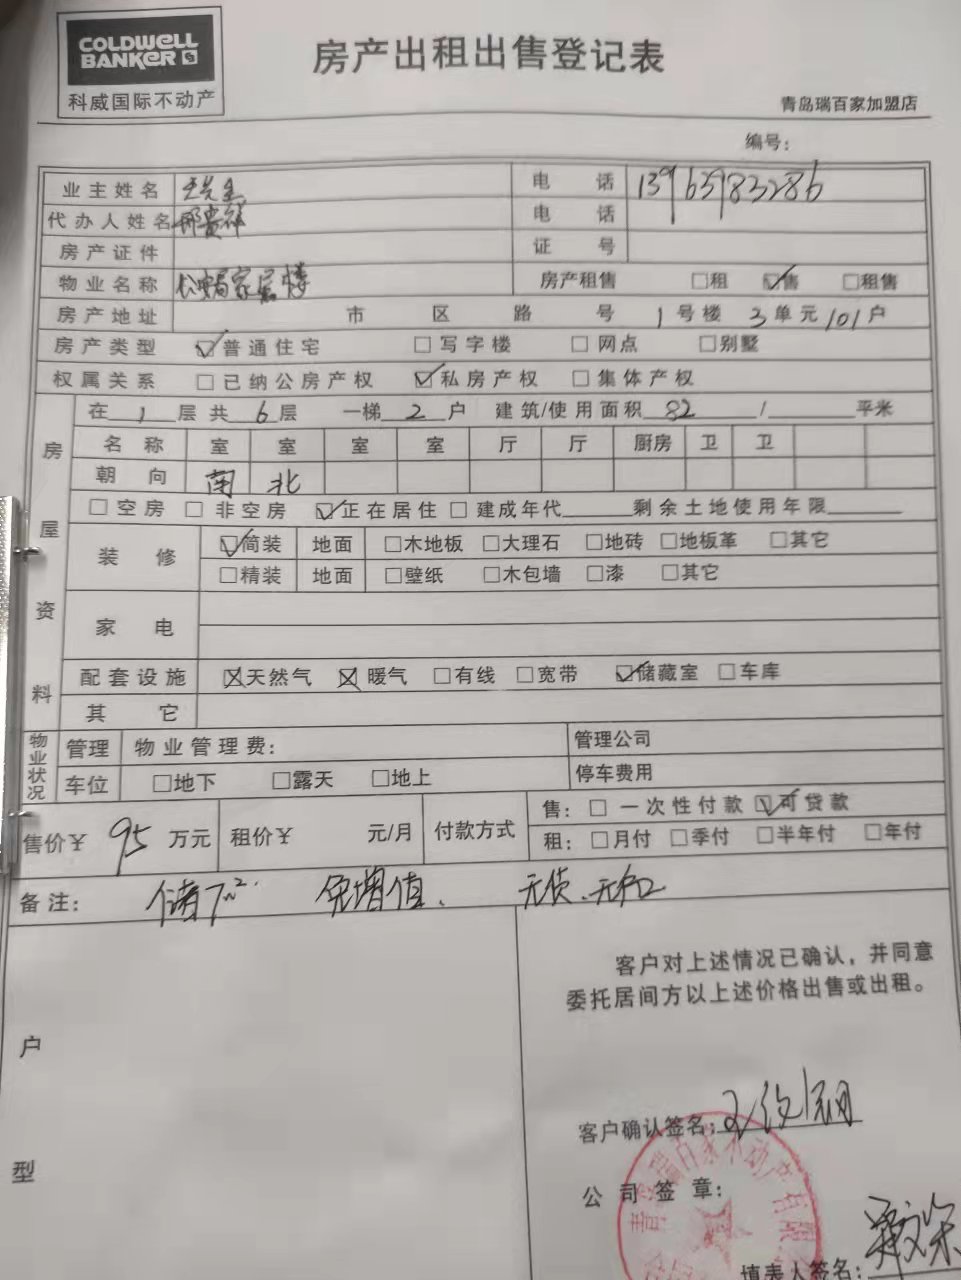 COLDWELL
BANKER
科威国际不动产
房产出租出售登记表
青岛瑞百家加盟店
编号：
业主姓名 王先生 电话 13963983286
代办人姓名 邢贵祥 电话
房产证件 证号
物业名称 公安局家属楼 房产租售 □租 ☑售 □租售
房产地址 市 区 路 号 1号楼 3单元 101户
房产类型 ☑普通住宅 □写字楼 □网点 □别墅
权属关系 □已纳公房产权 ☑私房产权 □集体产权
房屋资料
在 1 层 共 6 层 一梯 2 户 建筑/使用面积 82 / 平米
名称 室 室 室 室 厅 厅 厨房 卫 卫
朝向 南 北
□空房 □非空房 ☑正在居住 □建成年代 剩余土地使用年限
装修 ☑简装 地面 □木地板 □大理石 □地砖 □地板革 □其它
□精装 地面 □壁纸 □木包墙 □漆 □其它
家电
配套设施 ☒天然气 ☒暖气 □有线 □宽带 ☑储藏室 □车库
其它
物业状况
管理 物业管理费： 管理公司
车位 □地下 □露天 □地上 停车费用
售价￥ 95 万元 租价￥ 元/月 付款方式 售：□一次性付款 ☑可贷款
租：□月付 □季付 □半年付 □年付
备注： 储7m². 免增值、 无债、无和
户型
客户对上述情况已确认，并同意
委托居间方以上述价格出售或出租。
客户确认签名：
公司签章：
填表人签名：